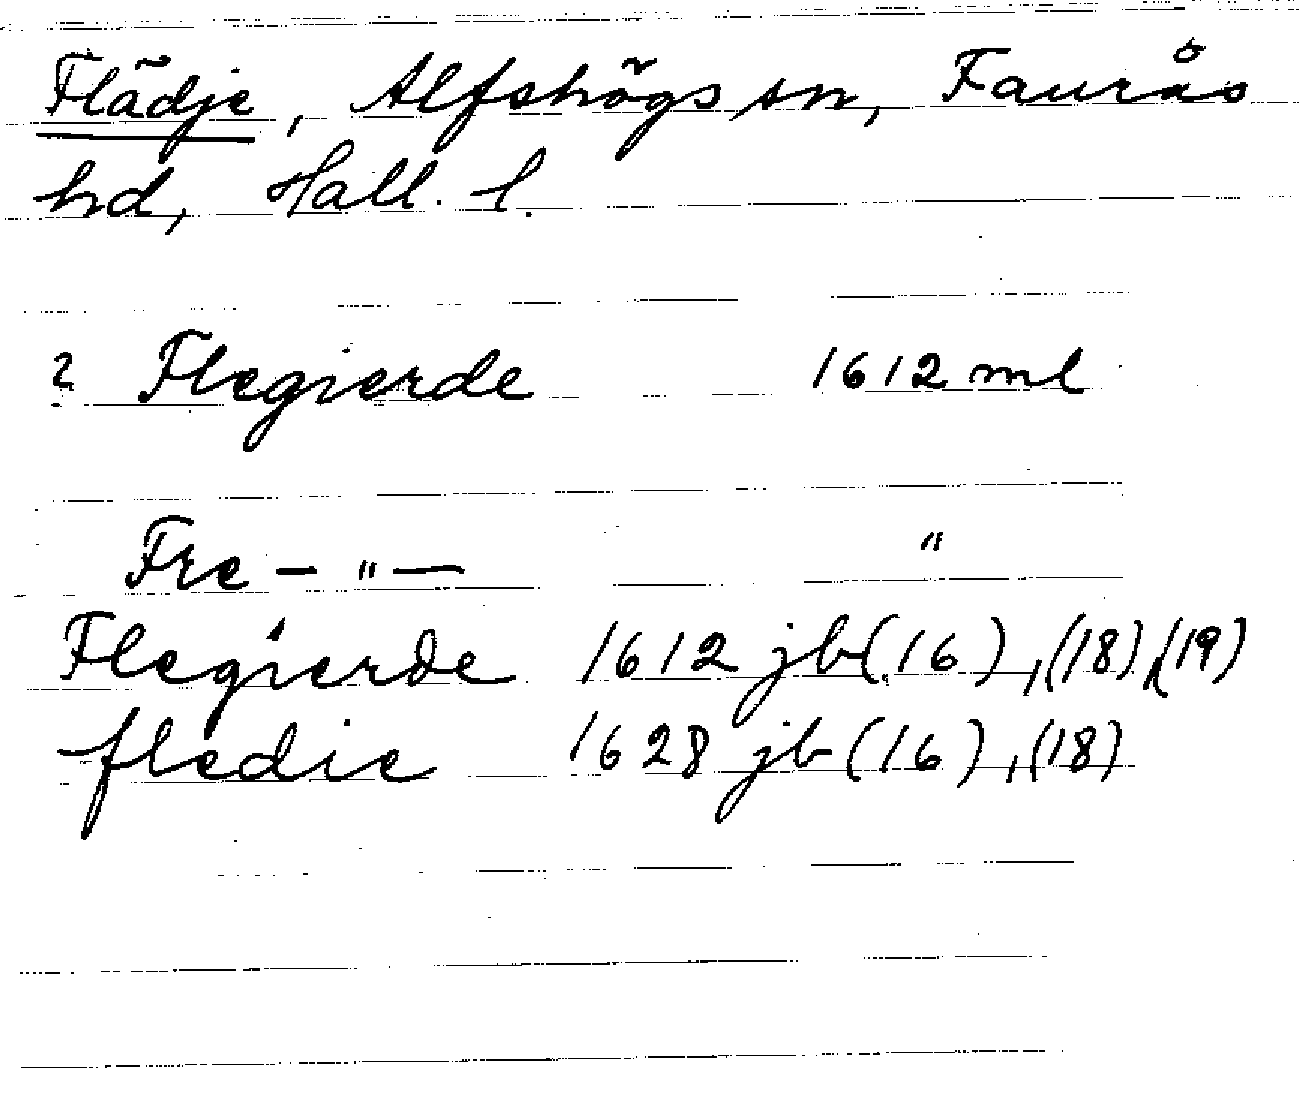 Flädje, Alfshögs sn, Faurås
hd, Hall. l.
? Flegierde 1612 ml
Fre - " - "
Flegierde 1612 jb (16), (18), (19)
fledie 1628 jb (16), (18)